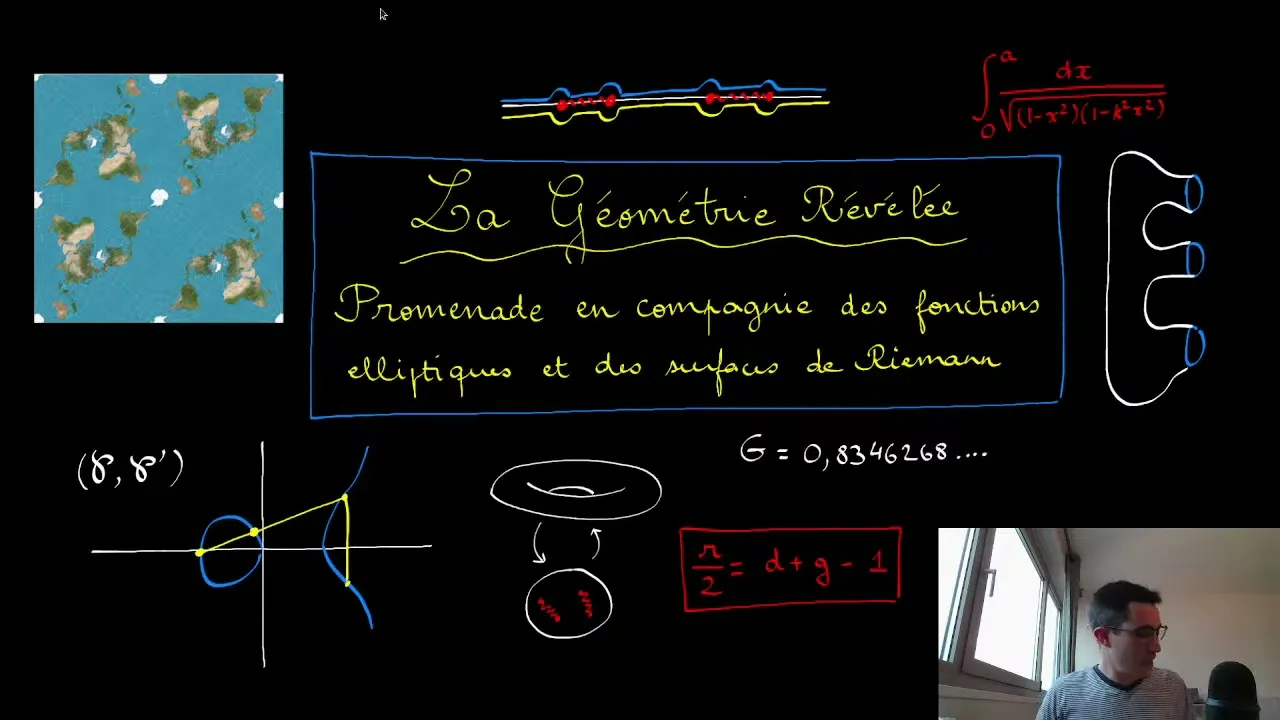 ∫₀ᵃ dx / √((1-x²)(1-k²x²))
La Géométrie Révélée
Promenade en compagnie des fonctions
elliptiques et des surfaces de Riemann
G = 0,8346268....
(℘, ℘')
r/2 = d + g - 1